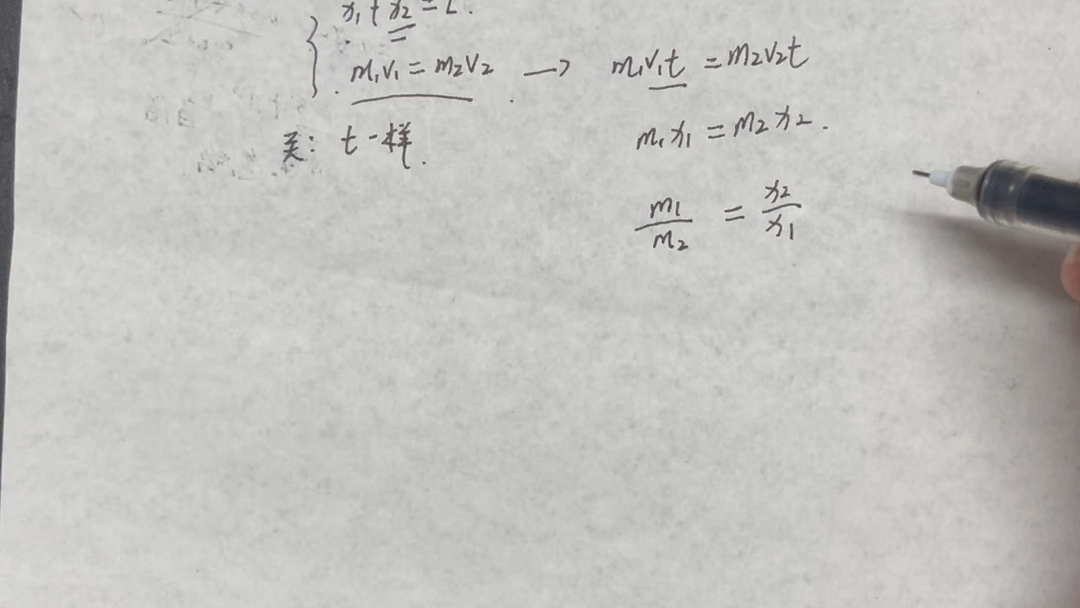 x₁ + x₂ = L.
m₁v₁ = m₂v₂ → m₁v₁t = m₂v₂t
m₁x₁ = m₂x₂.
关: t一样.
m₁/m₂ = x₂/x₁